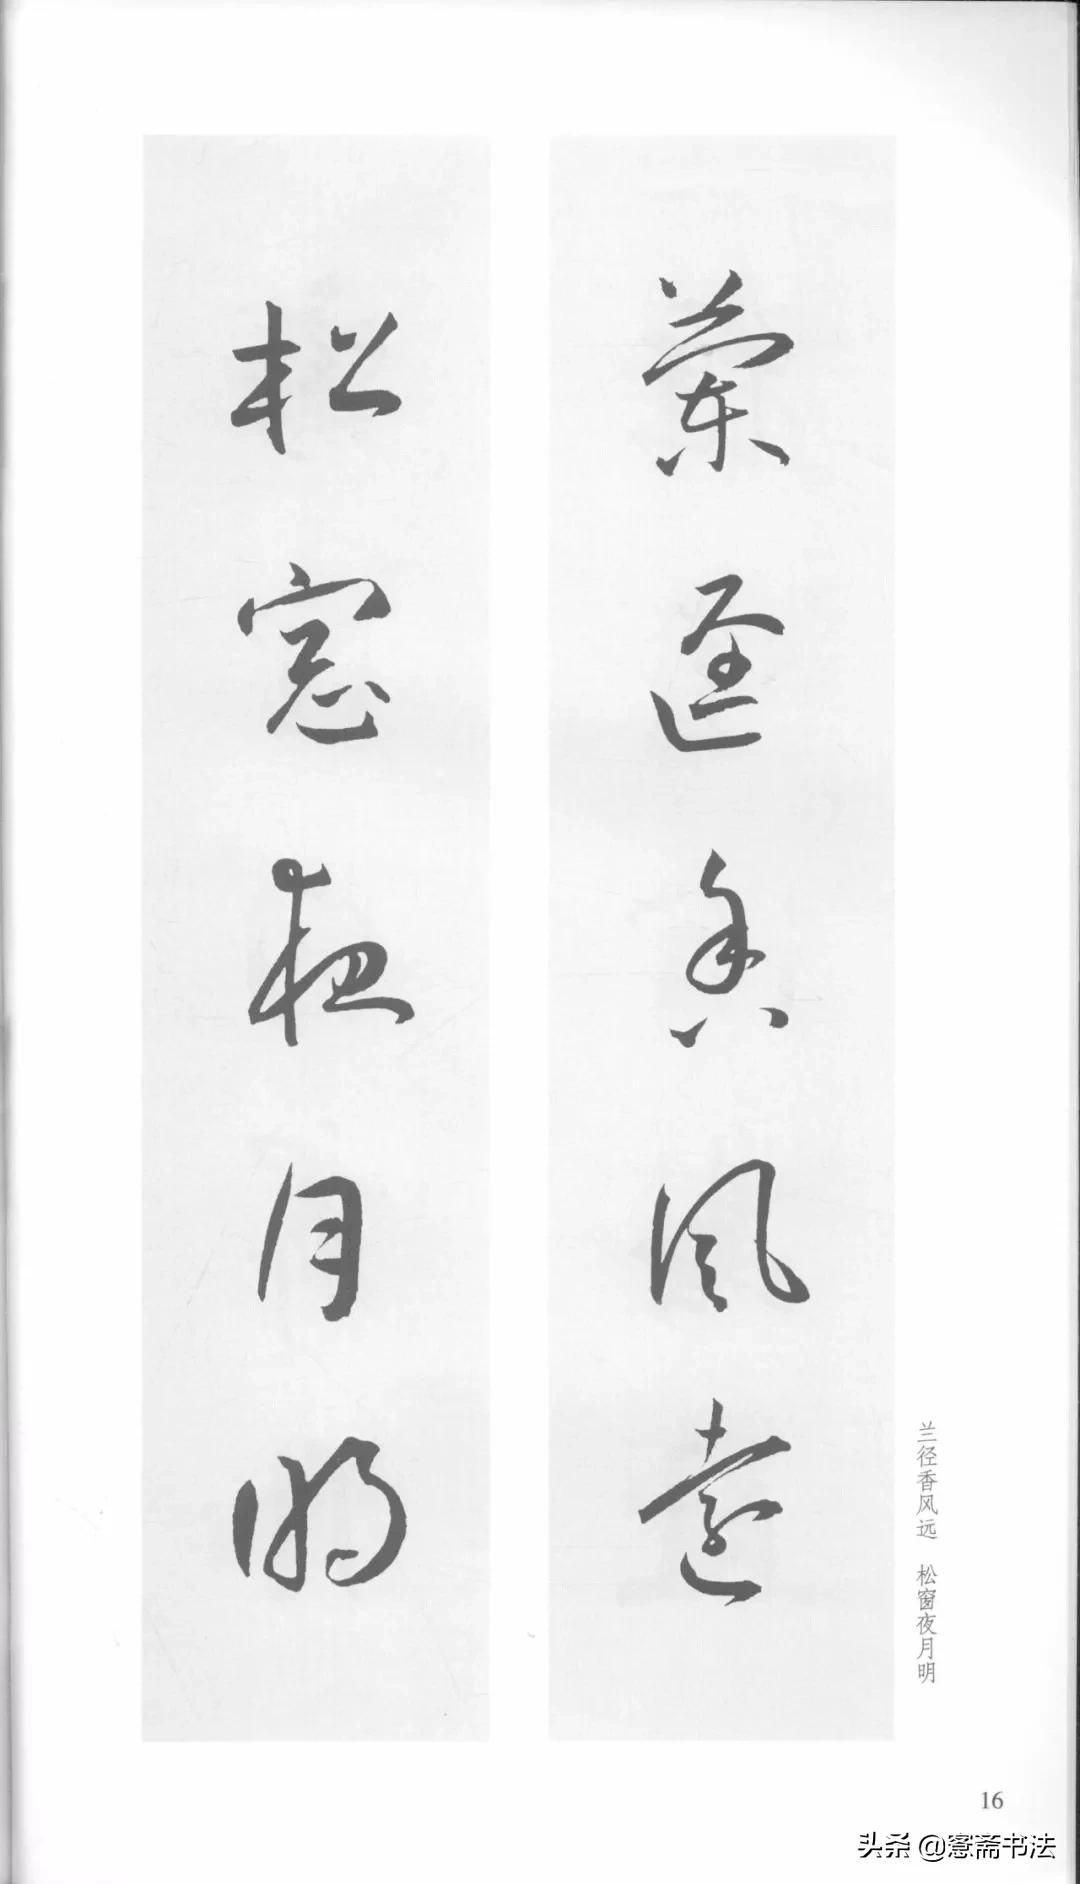 蘭迳香风遠
松窓夜月明
兰径香风远 松窗夜月明
16
头条 @窓斋书法